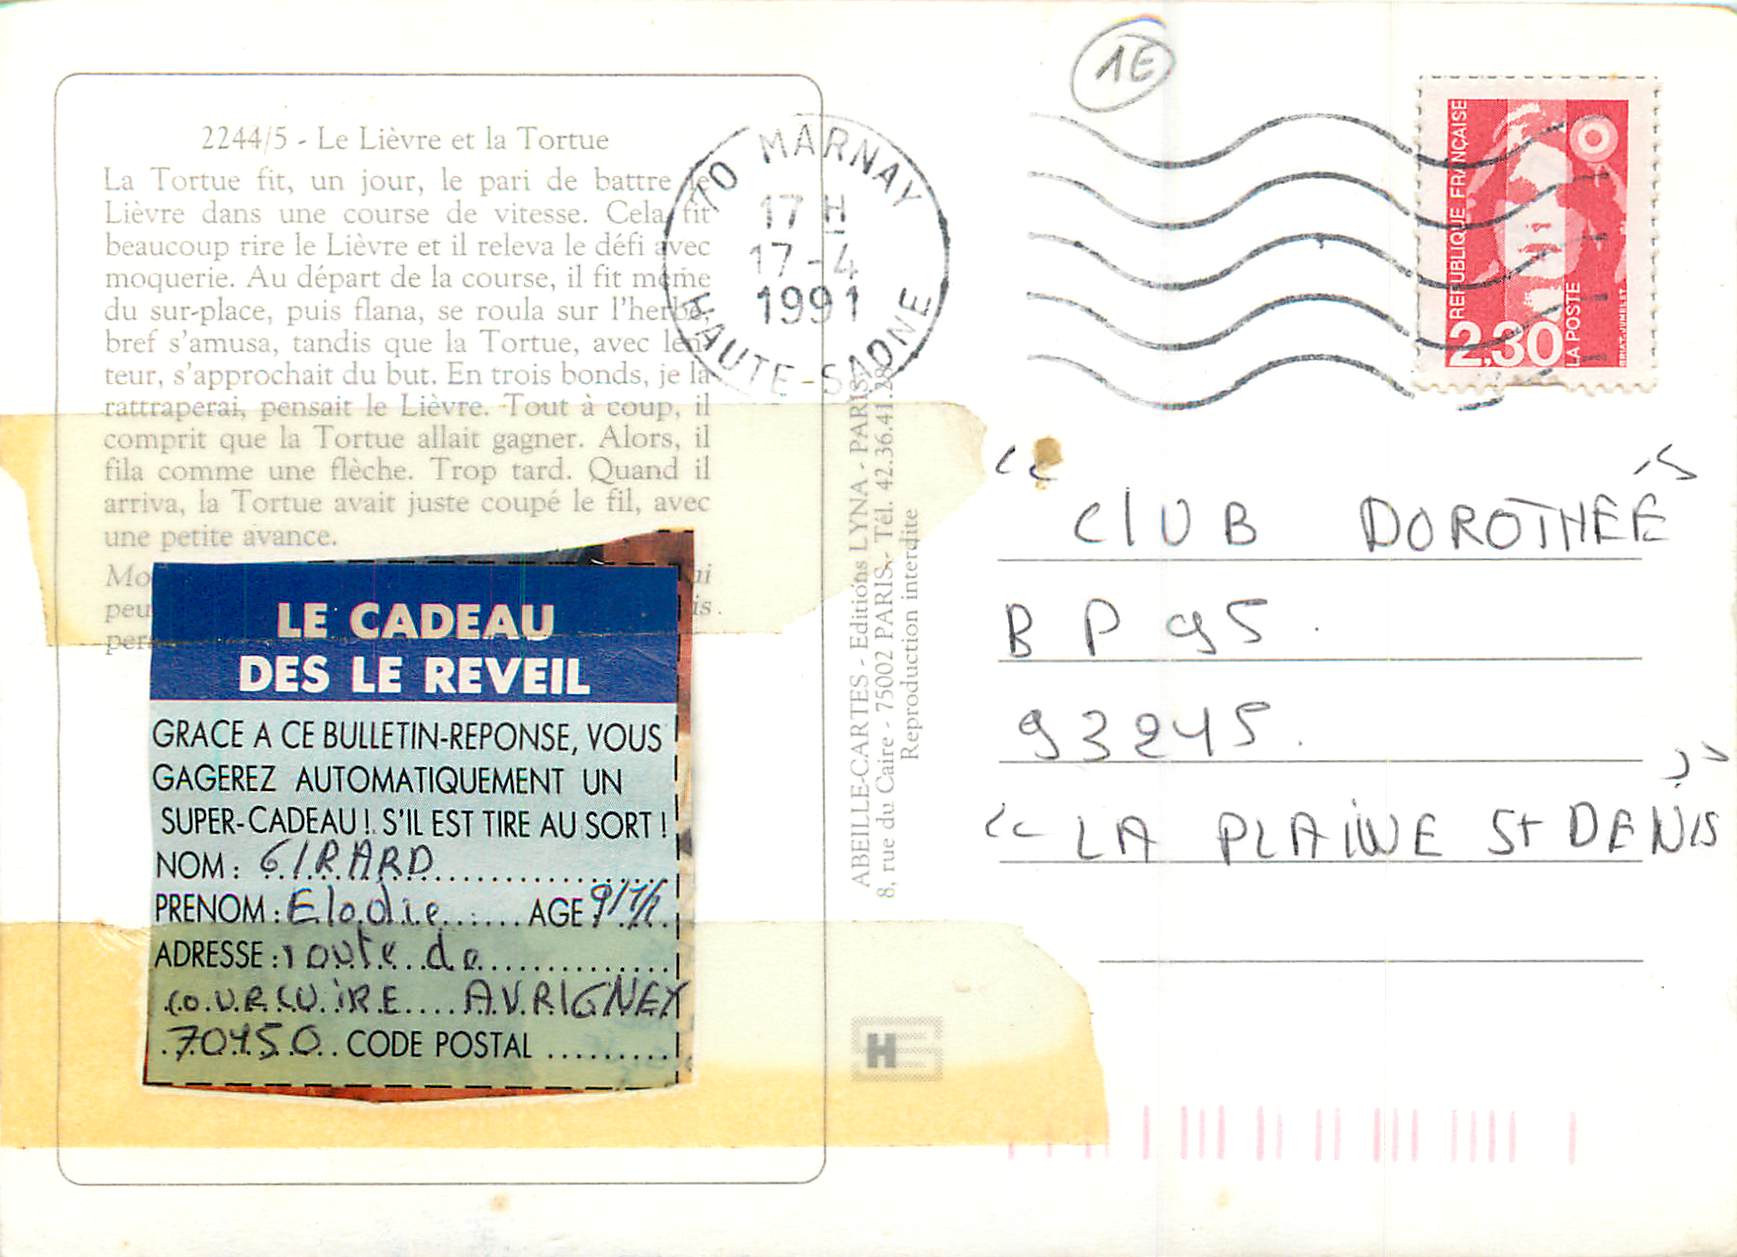 1E
2244/5 - Le Lièvre et la Tortue
La Tortue fit, un jour, le pari de battre le
Lièvre dans une course de vitesse. Cela fit
beaucoup rire le Lièvre et il releva le défi avec
moquerie. Au départ de la course, il fit même
du sur-place, puis flana, se roula sur l'herbe,
bref s'amusa, tandis que la Tortue, avec len-
teur, s'approchait du but. En trois bonds, je la
rattraperai, pensait le Lièvre. Tout à coup, il
comprit que la Tortue allait gagner. Alors, il
fila comme une flèche. Trop tard. Quand il
arriva, la Tortue avait juste coupé le fil, avec
une petite avance.
LE CADEAU
DES LE REVEIL
GRACE A CE BULLETIN-REPONSE, VOUS
GAGEREZ AUTOMATIQUEMENT UN
SUPER-CADEAU ! S'IL EST TIRE AU SORT !
NOM : GIRARD
PRENOM : Elodie AGE
ADRESSE : route de
COURCUIRE AVRIGNEY
70150 CODE POSTAL
70 MARNAY
17 H
17-4
1991
HAUTE-SAONE
ABEILLE-CARTES - Editions LYNA - PARIS
8, rue du Caire - 75002 PARIS - Tél. 42.36.41.28
Reproduction interdite
REPUBLIQUE FRANÇAISE
2,30
LA POSTE
BRIAT-JUMELET
"CLUB DOROTHÉE"
BP 95.
93245.
"LA PLAINE St DENIS"